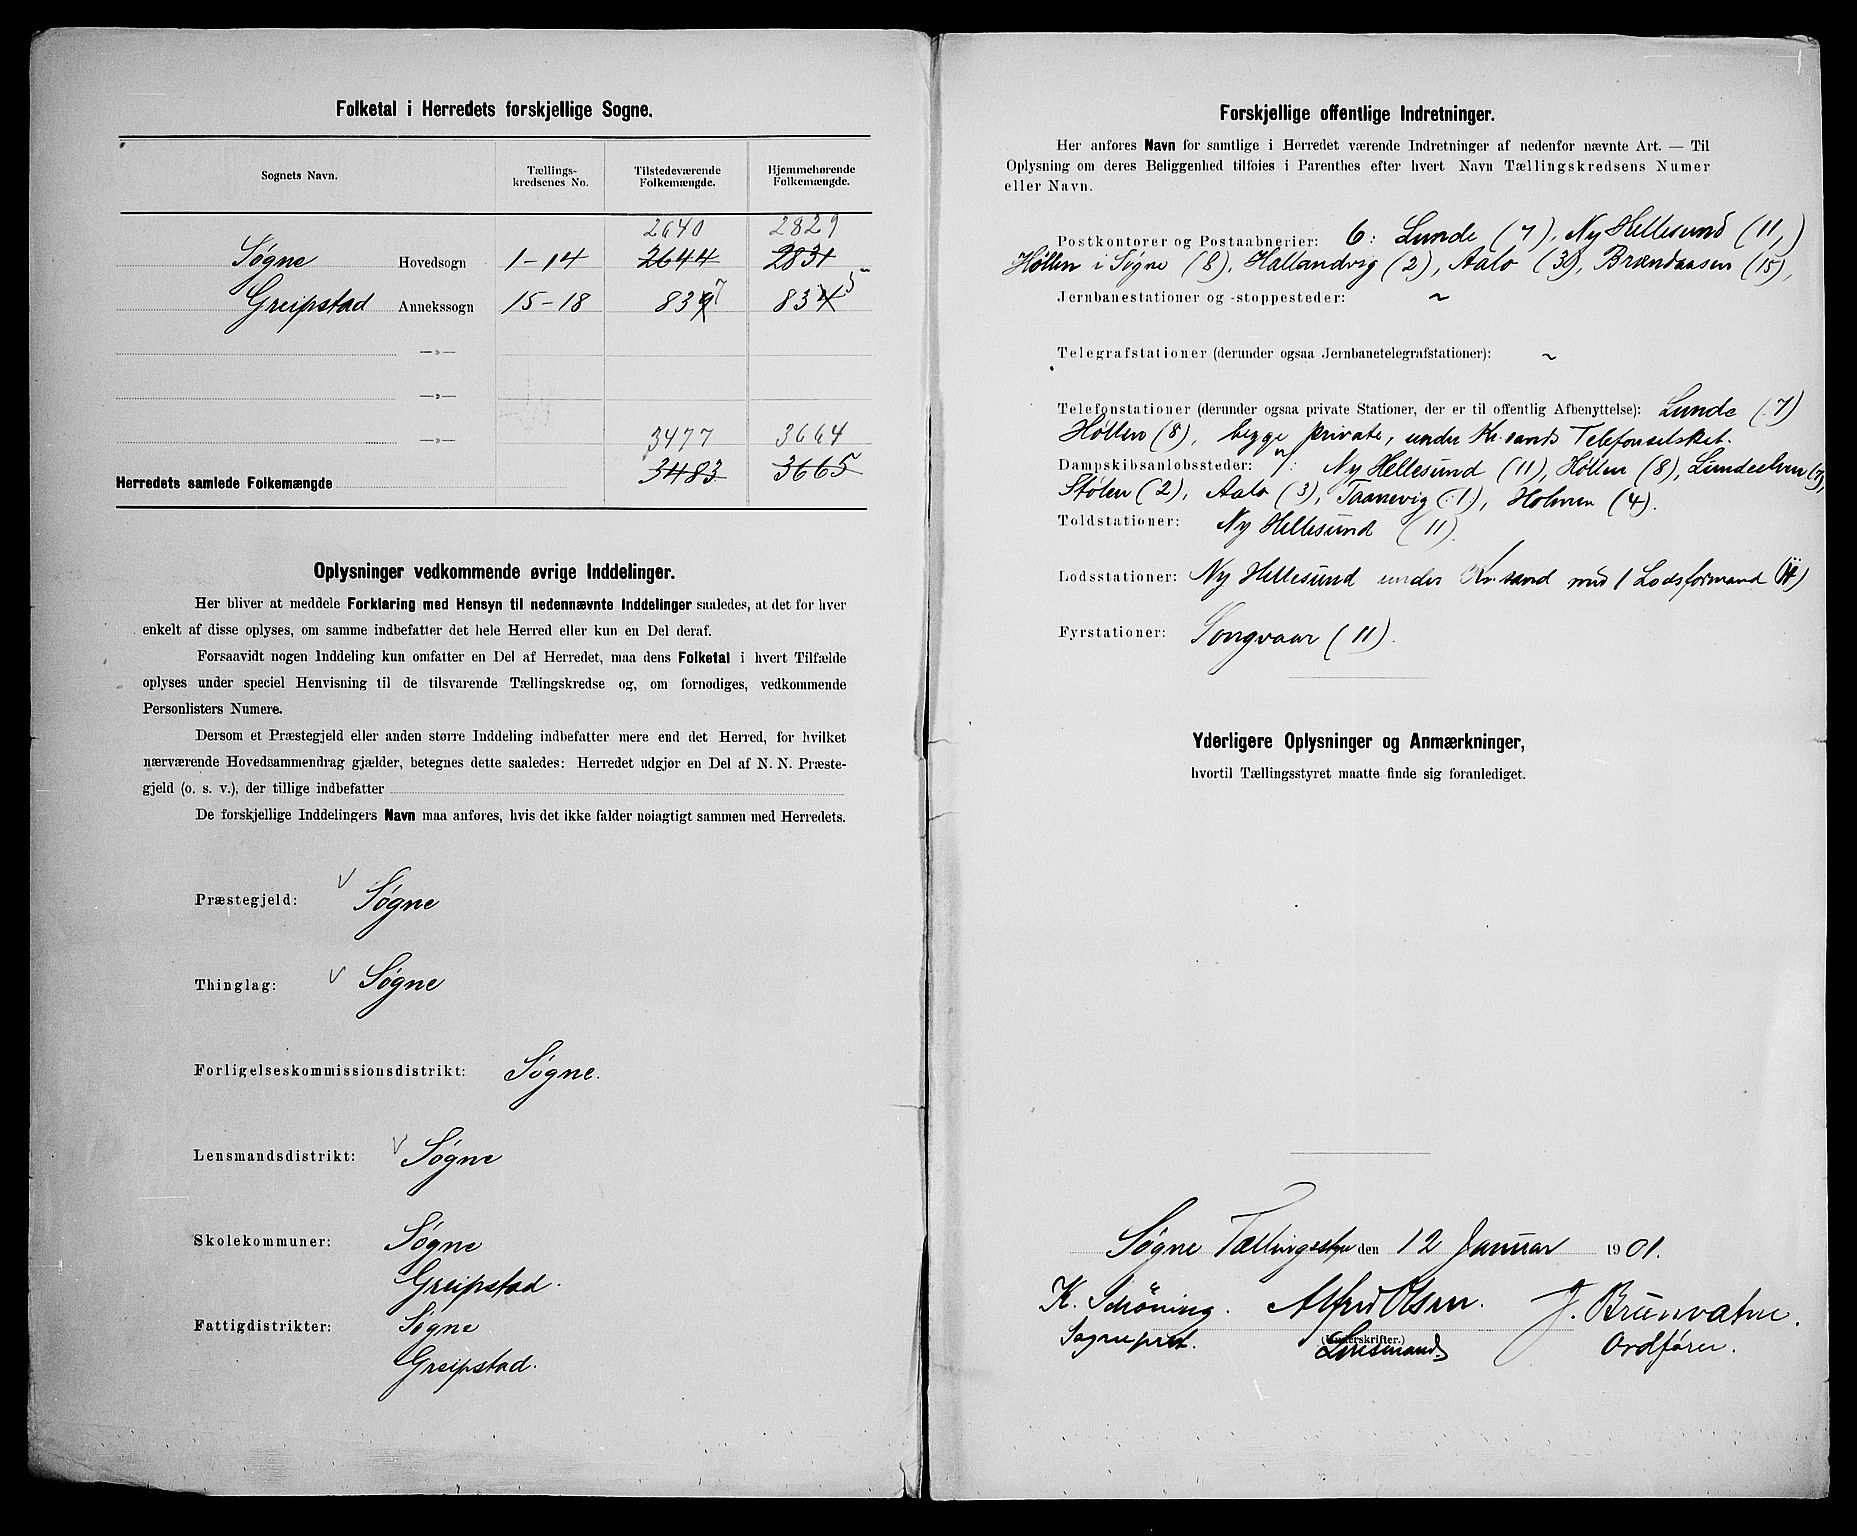 Folketal i Herredets forskjellige Sogne.
Sognets Navn. Tællings-kredsenes No. Tilstedeværende Folkemængde. Hjemmehørende Folkemængde.
2640 2829
Søgne Hovedsogn 1-14 2644 2831
Greipstad Annekssogn 15-18 8397 8345
—»—
—»—
—»— 3477 3664
Herredets samlede Folkemængde 3483 3665
Oplysninger vedkommende øvrige Inddelinger.
Her bliver at meddele Forklaring med Hensyn til nedennævnte Inddelinger saaledes, at det for hver
enkelt af disse oplyses, om samme indbefatter det hele Herred eller kun en Del deraf.
Forsaavidt nogen Inddeling kun omfatter en Del af Herredet, maa dens Folketal i hvert Tilfælde
oplyses under speciel Henvisning til de tilsvarende Tællingskredse og, om fornødiges, vedkommende
Personlisters Numere.
Dersom et Præstegjeld eller anden større Inddeling indbefatter mere end det Herred, for hvilket
nærværende Hovedsammendrag gjælder, betegnes dette saaledes: Herredet udgjør en Del af N. N. Præste-
gjeld (o. s. v.), der tillige indbefatter
De forskjellige Inddelingers Navn maa anføres, hvis det ikke falder nøiagtigt sammen med Herredets.
Præstegjeld: Søgne
Thinglag: Søgne
Forligelseskommissionsdistrikt: Søgne.
Lensmandsdistrikt: Søgne
Skolekommuner: Søgne
Greipstad.
Fattigdistrikter: Søgne
Greipstad.
Forskjellige offentlige Indretninger.
Her anføres Navn for samtlige i Herredet værende Indretninger af nedenfor nævnte Art. — Til
Oplysning om deres Beliggenhed tilføies i Parenthes efter hvert Navn Tællingskredsens Numer
eller Navn.
Postkontorer og Postaabnerier: 6: Lunde (7), Ny Hellesund (11,)
Høllen i Søgne (8), Hallandvig (2), Aalo (3), Brændaasen (15),
Jernbanestationer og -stoppesteder: ~
Telegrafstationer (derunder ogsaa Jernbanetelegrafstationer): ~
Telefonstationer (derunder ogsaa private Stationer, der er til offentlig Afbenyttelse): Lunde (7)
Høllen (8), begge private, under Kr.sands Telefonselskab.
Dampskibsanløbssteder: 7: Ny Hellesund (11), Høllen (8), Lundeelven (7),
Stølen (2), Aalo (3), Taanevig (1), Holmen (4).
Toldstationer: Ny Hellesund (11).
Lodsstationer: Ny Hellesund under Kr.sand med 1 Lodsformand (11)
Fyrstationer: Songvaar (11).
Yderligere Oplysninger og Anmærkninger,
hvortil Tællingsstyret maatte finde sig foranlediget.
Søgne Tællingsstyre den 12 Januar 1901.
K. Schöning. Alfred Olsen. J. Brunvatne.
(Underskrifter.)
Sogneprest. Lensmand Ordfører.